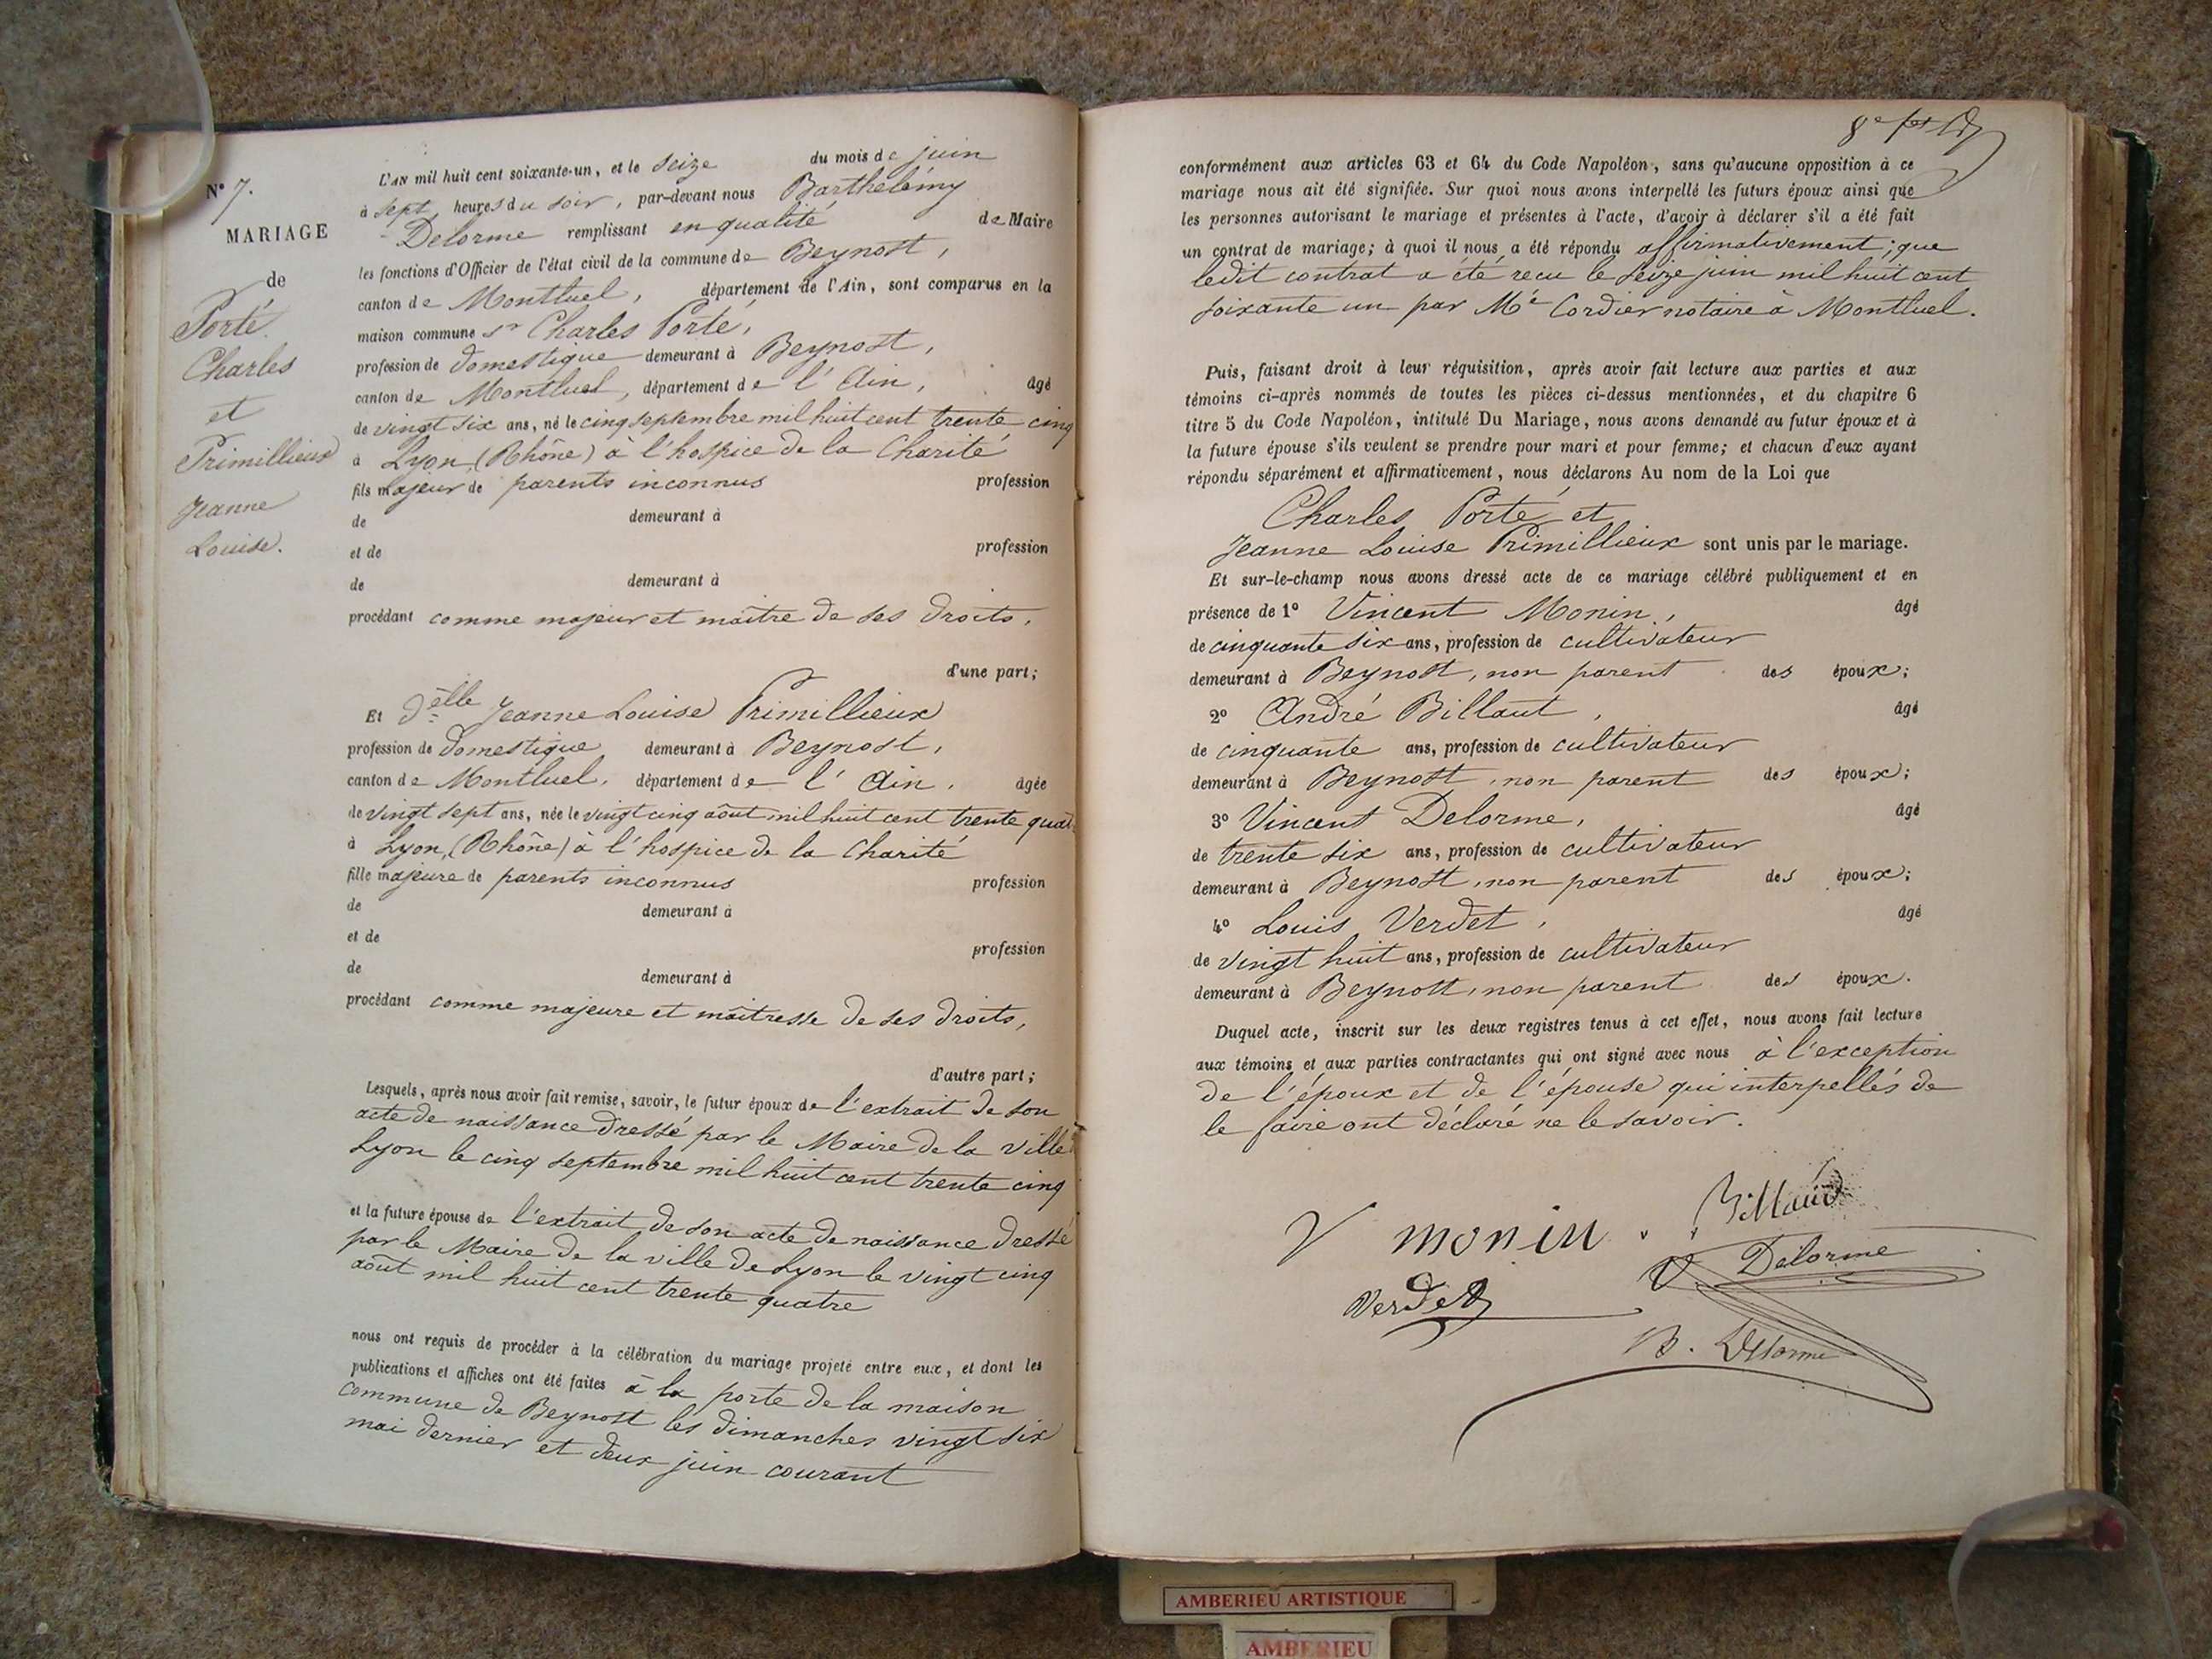 N° 7.
MARIAGE
de
Porté
Charles
et
Primillieux
Jeanne
Louise.
L'AN mil huit cent soixante-un, et le seize du mois de juin
à sept heures du soir, par-devant nous Barthelémy
Delorme remplissant en qualité de Maire
les fonctions d'Officier de l'état civil de la commune de Beynost,
canton de Montluel, département de l'Ain, sont comparus en la
maison commune sr Charles Porté,
profession de domestique demeurant à Beynost,
canton de Montluel, département de l'Ain, âgé
de vingt six ans, né le cinq septembre mil huit cent trente cinq
à Lyon, (Rhône) à l'hospice de la Charité
fils majeur de parents inconnus profession
de demeurant à
et de profession
de demeurant à
procédant comme majeur et maître de ses droits,
d'une part;
Et delle Jeanne Louise Primillieux
profession de domestique demeurant à Beynost,
canton de Montluel, département de l'Ain, âgée
de vingt sept ans, née le vingt cinq août mil huit cent trente quat
à Lyon, (Rhône) à l'hospice de la Charité
fille majeure de parents inconnus profession
de demeurant à
et de profession
de demeurant à
procédant comme majeure et maîtresse de ses droits,
d'autre part;
Lesquels, après nous avoir fait remise, savoir, le futur époux de l'extrait de son
acte de naissance dressé par le Maire de la ville
Lyon le cinq septembre mil huit cent trente cinq
et la future épouse de l'extrait de son acte de naissance dressé
par le Maire de la ville de Lyon le vingt cinq
août mil huit cent trente quatre
nous ont requis de procéder à la célébration du mariage projeté entre eux, et dont les
publications et affiches ont été faites à la porte de la maison
commune de Beynost les dimanches vingt six
mai dernier et deux juin courant
8e
conformément aux articles 63 et 64 du Code Napoléon, sans qu'aucune opposition à ce
mariage nous ait été signifiée. Sur quoi nous avons interpellé les futurs époux ainsi que
les personnes autorisant le mariage et présentes à l'acte, d'avoir à déclarer s'il a été fait
un contrat de mariage; à quoi il nous a été répondu affirmativement; que
ledit contrat a été reçu le seize juin mil huit cent
soixante un par Me Cordier notaire à Montluel.
Puis, faisant droit à leur réquisition, après avoir fait lecture aux parties et aux
témoins ci-après nommés de toutes les pièces ci-dessus mentionnées, et du chapitre 6
titre 5 du Code Napoléon, intitulé Du Mariage, nous avons demandé au futur époux et à
la future épouse s'ils veulent se prendre pour mari et pour femme; et chacun d'eux ayant
répondu séparément et affirmativement, nous déclarons Au nom de la Loi que
Charles Porté et
Jeanne Louise Primillieux sont unis par le mariage.
Et sur-le-champ nous avons dressé acte de ce mariage célébré publiquement et en
présence de 1° Vincent Monin, âgé
de cinquante six ans, profession de cultivateur
demeurant à Beynost, non parent des époux;
2° André Billaut, âgé
de cinquante ans, profession de cultivateur
demeurant à Beynost, non parent des époux;
3° Vincent Delorme, âgé
de trente six ans, profession de cultivateur
demeurant à Beynost, non parent des époux;
4° Louis Verdet, âgé
de vingt huit ans, profession de cultivateur
demeurant à Beynost, non parent des époux.
Duquel acte, inscrit sur les deux registres tenus à cet effet, nous avons fait lecture
aux témoins et aux parties contractantes qui ont signé avec nous à l'exception
de l'époux et de l'épouse qui interpellés de
le faire ont déclaré ne le savoir.
V monin. Billaud
V Delorme
Verdet
B. Delorme
AMBERIEU ARTISTIQUE
AMBERIEU